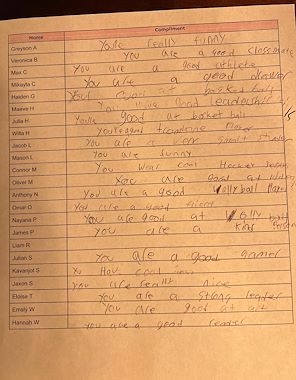 Name Compliment
Greyson A Youre really funny
Veronica B You are a good classmate
Max C You are a good athlete
Mikayla C You are a good drawer
Haiden G Your good at basket ball
Maeve H You have Good leadership
Julia H You're good at basket ball
Willa H You're good trombone
Jacob L You are a very great
Mason L You are funny
Connor M You wear cool Hockey
Oliver M You are Good at
Anthony N You are a good Vollyball
Omar O You are a good friend
Nayana P You are good at Volly ball
James P You are a kind Person
Liam R
Julian S You are a good gamer
Kavanjot S You Have cool
Jaxon S you are really nice
Eloise T You are a strong leader
Emely W You are good at art
Hannah W you are a good reader